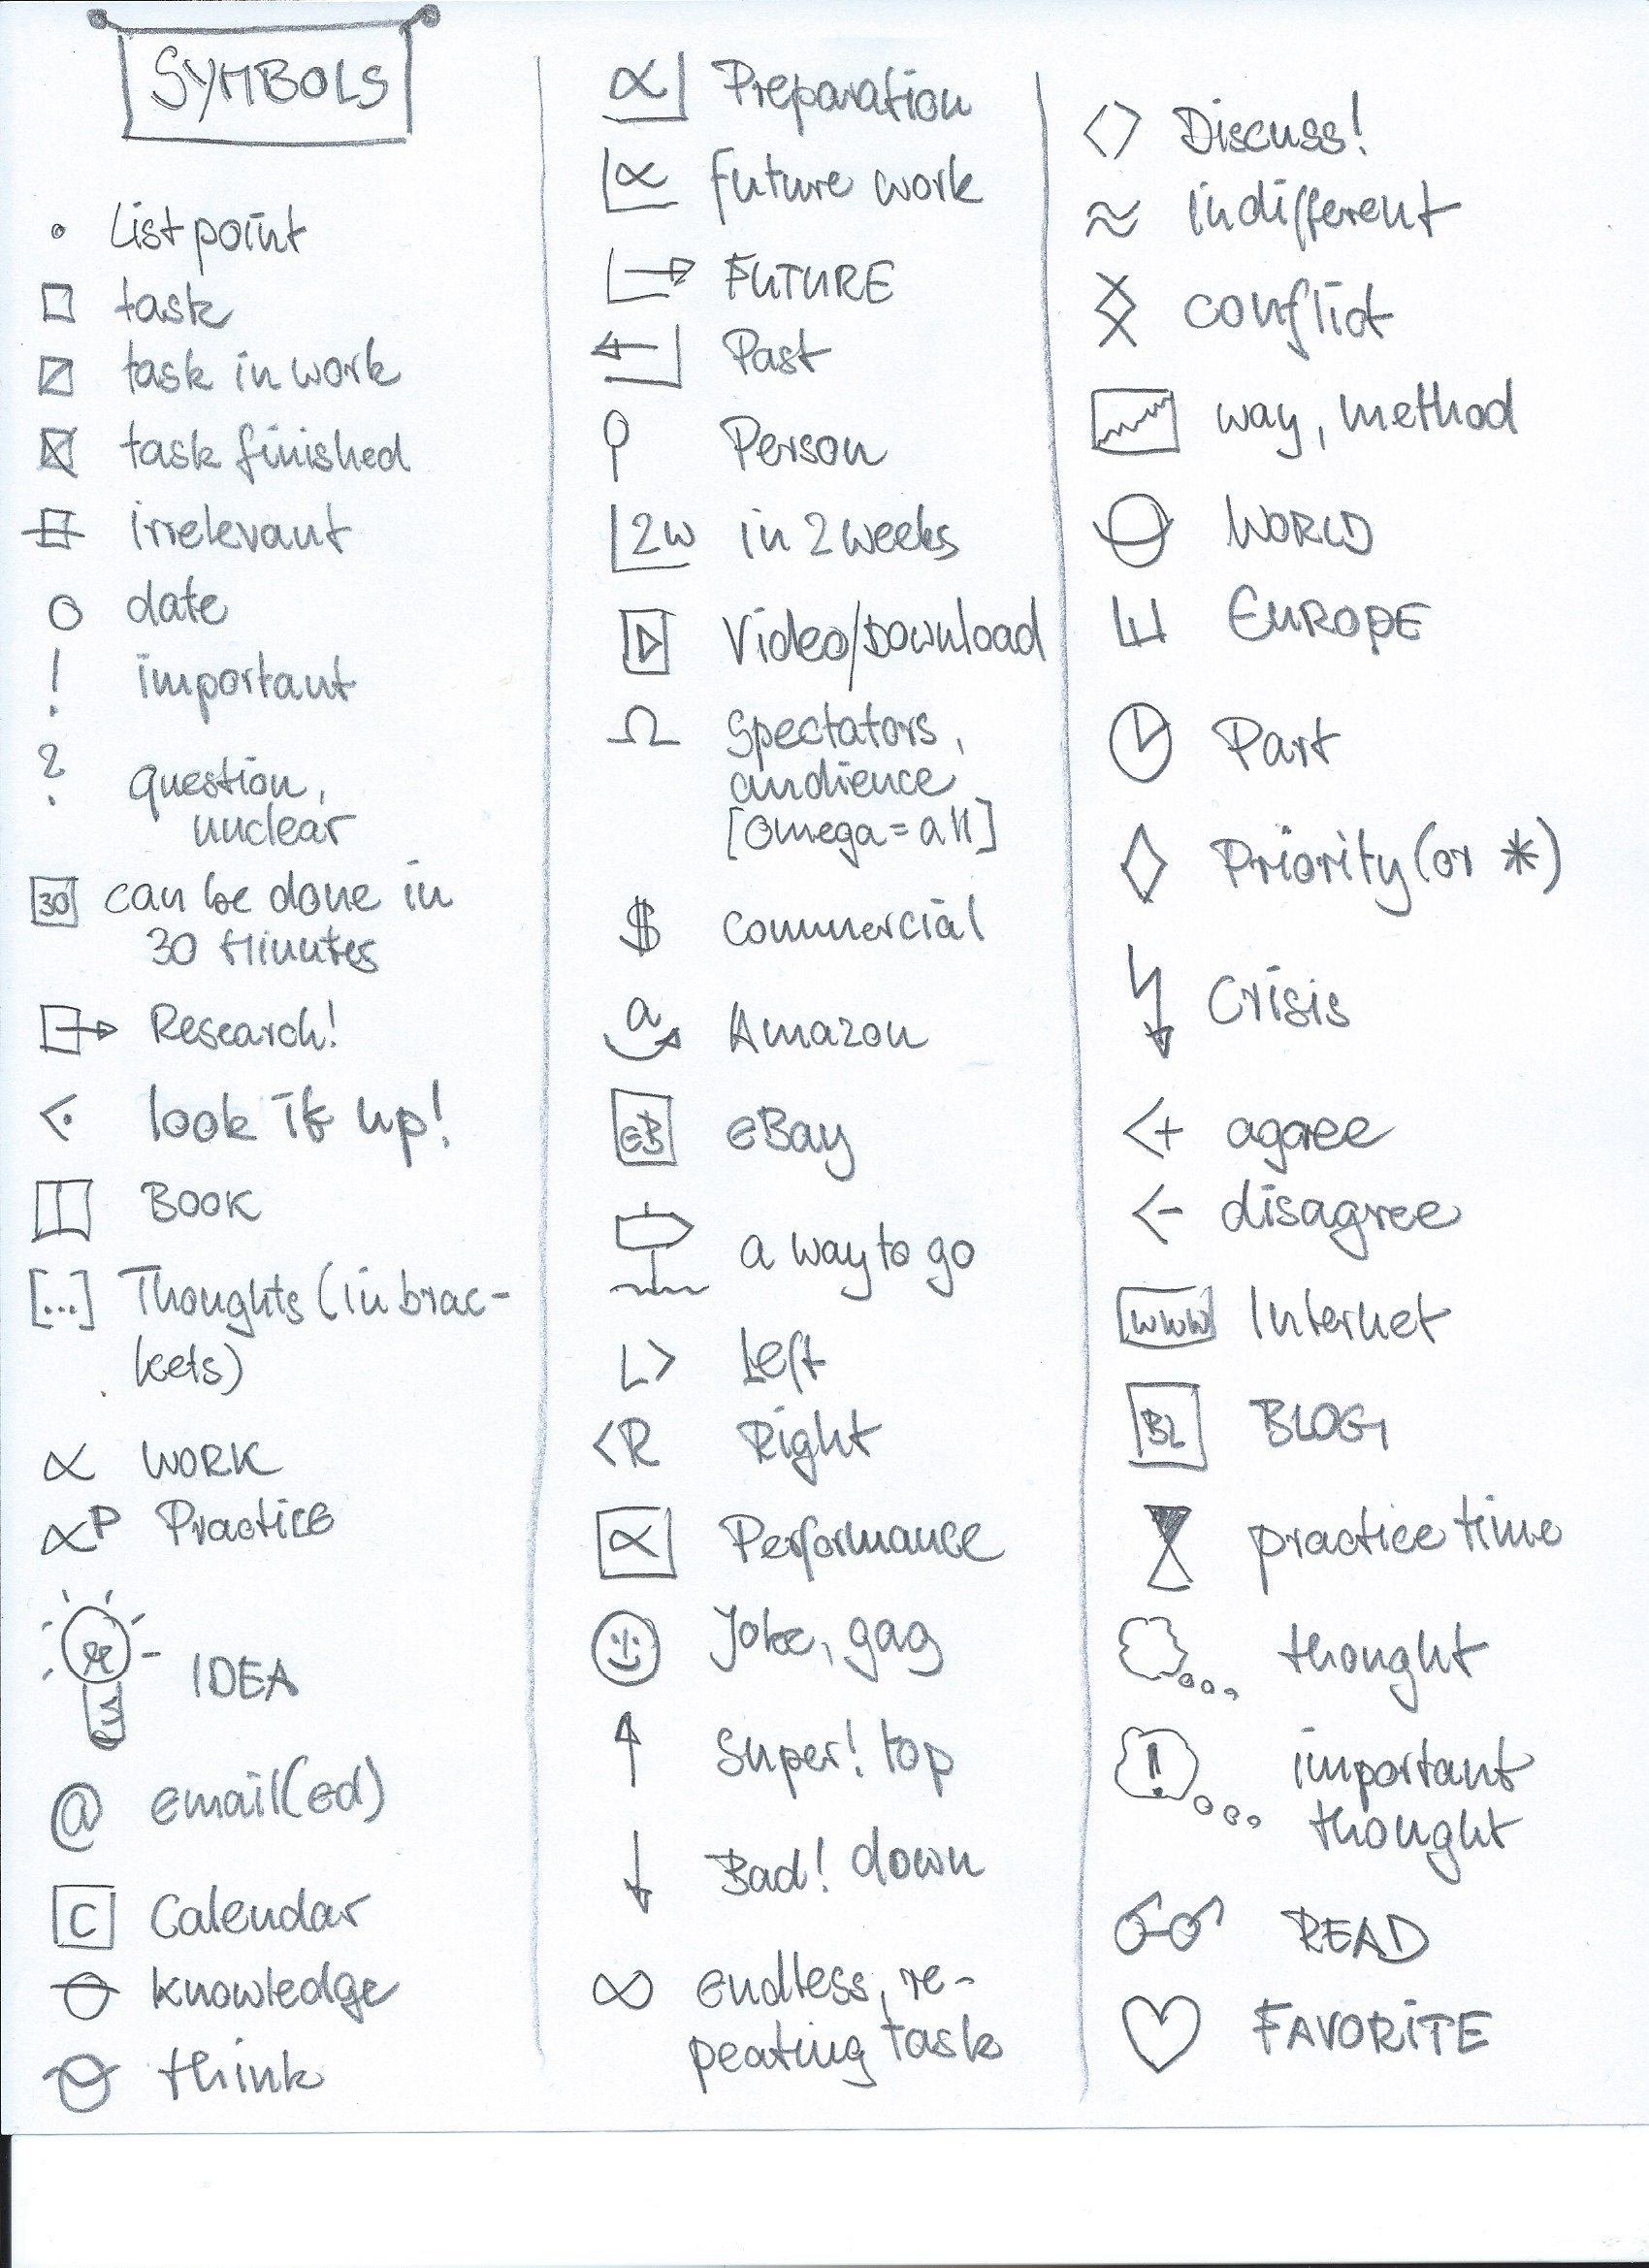 SYMBOLS
List point
task
task in work
task finished
irrelevant
date
! important
? question,
unclear
30 can be done in
30 Minutes
Research!
look it up!
BOOK
[...] Thoughts (in brac-
kets)
∝ WORK
∝P Practice
IDEA
@ email(ed)
C Calendar
knowledge
think
∝ Preparation
∝ future work
FUTURE
Past
Person
2w in 2 weeks
Video/Download
Ω Spectators,
audience
[Omega = all]
$ commercial
a Amazon
eB eBay
a way to go
L> Left
<R Right
∝ Performance
Joke, gag
↑ Super! top
↓ Bad! down
∞ endless, re-
peating task
<> Discuss!
≈ indifferent
conflict
way, method
WORLD
E EUROPE
Part
Priority (or *)
Crisis
<+ agree
<- disagree
www Internet
BL BLOG
practice time
thought
!! important
thought
READ
FAVORITE